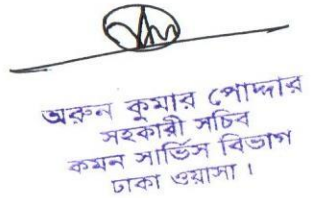 অরুন কুমার পোদ্দার
সহকারী সচিব
কমন সার্ভিস বিভাগ
ঢাকা ওয়াসা।